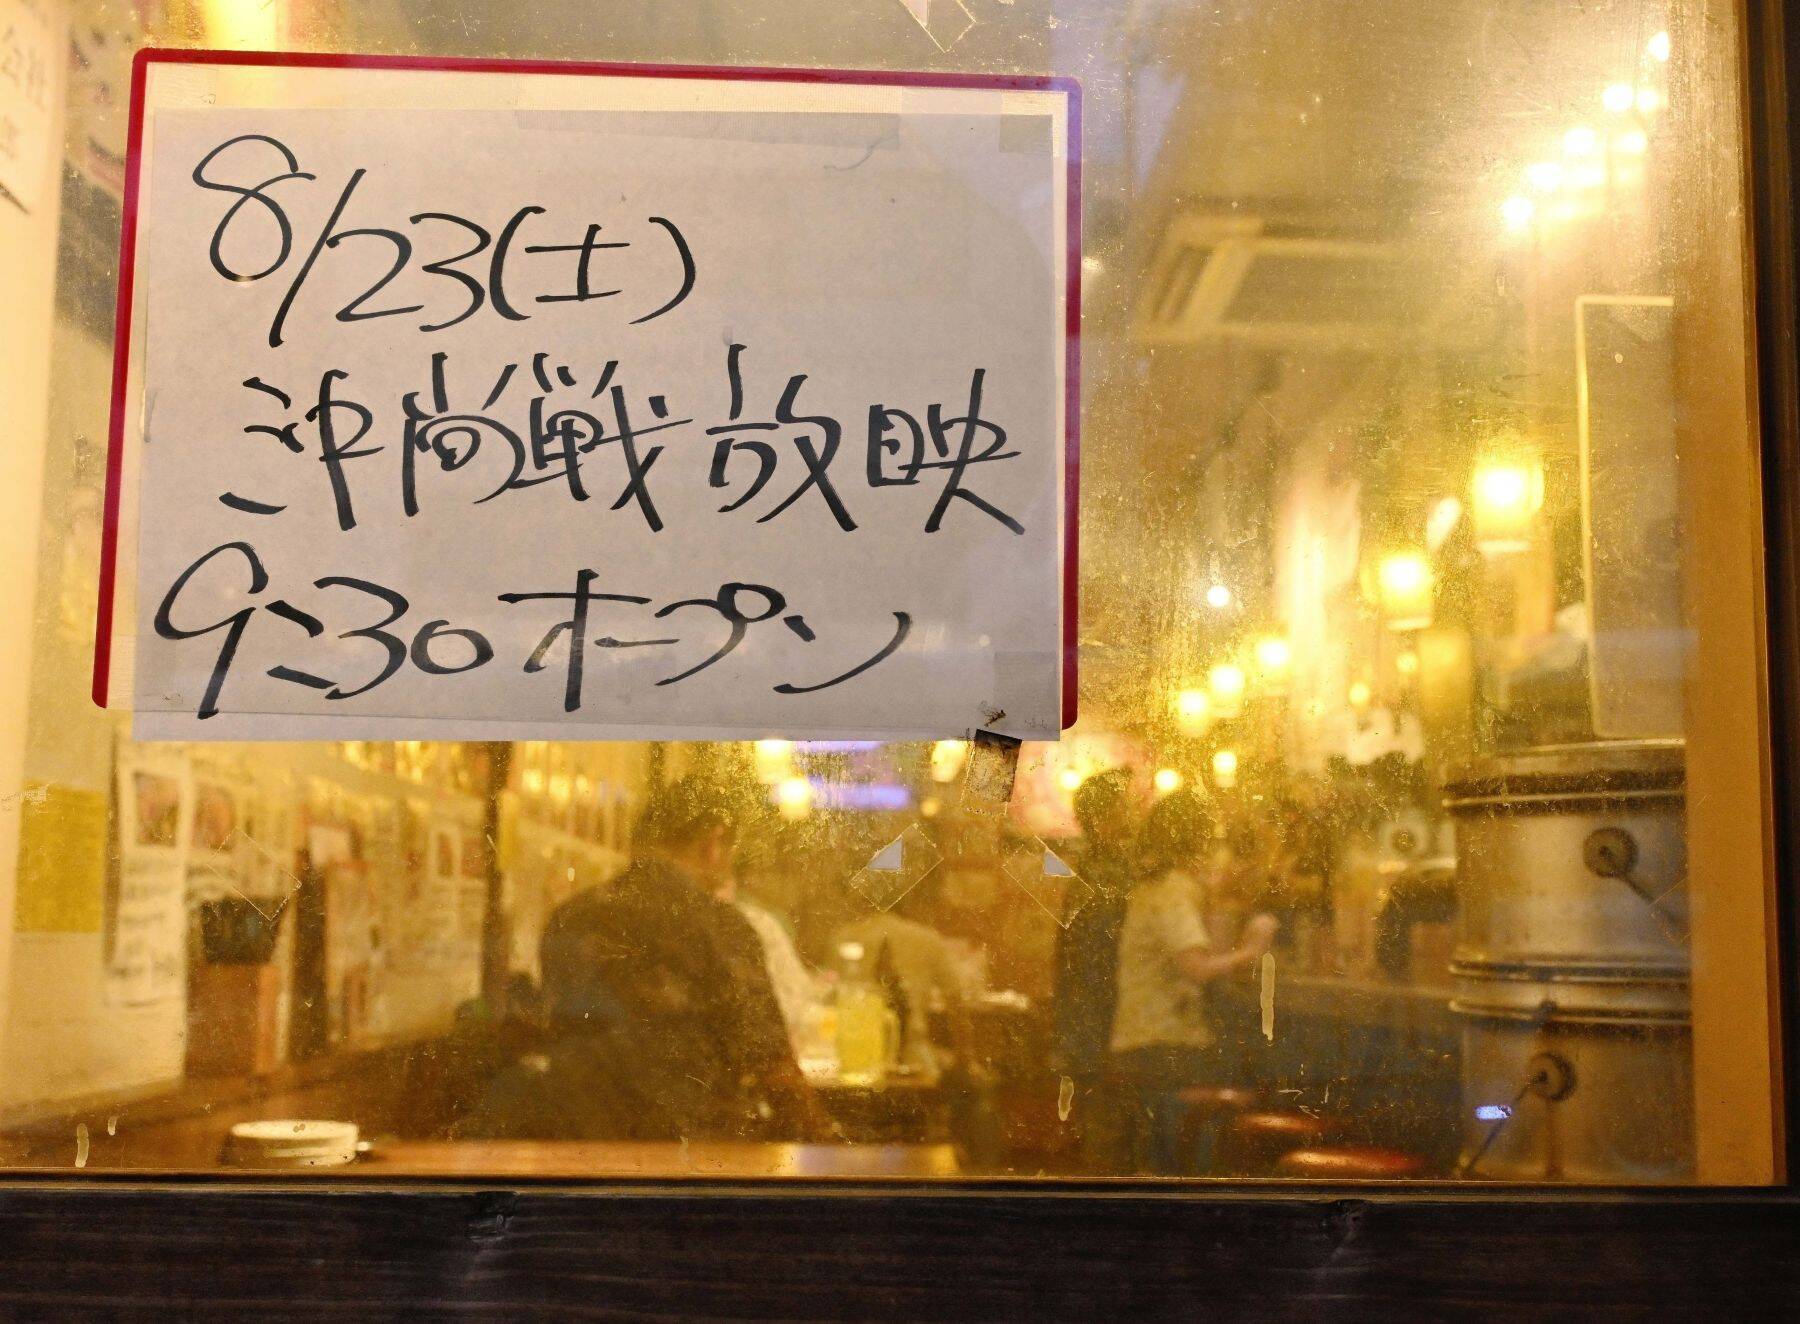 8/23(土)
沖尚戦放映
9:30オープン
会社
年